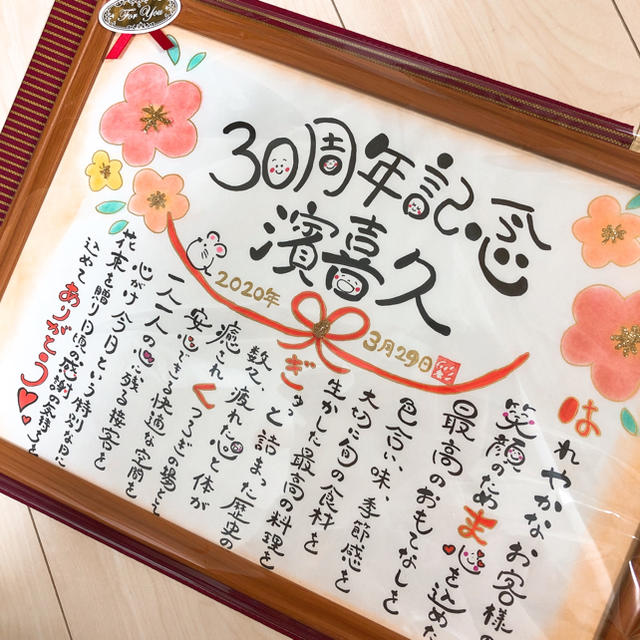 For You
30周年記念
濱喜久
2020年
3月29日
はれやかなお客様の
笑顔のため ま心を込めた
最高のおもてなしを
色合い、味、季節感を
大切に旬の食材を
生かした最高の料理を
ぎゅっと詰まった歴史の
数々 疲れた心と体が
癒され くつろぎの場として
安心できる快適な空間を
一人一人の心に残る接客を
心がけ 今日という特別な日に
花束を贈り 日頃の感謝の気持ちを
込めて ありがとう